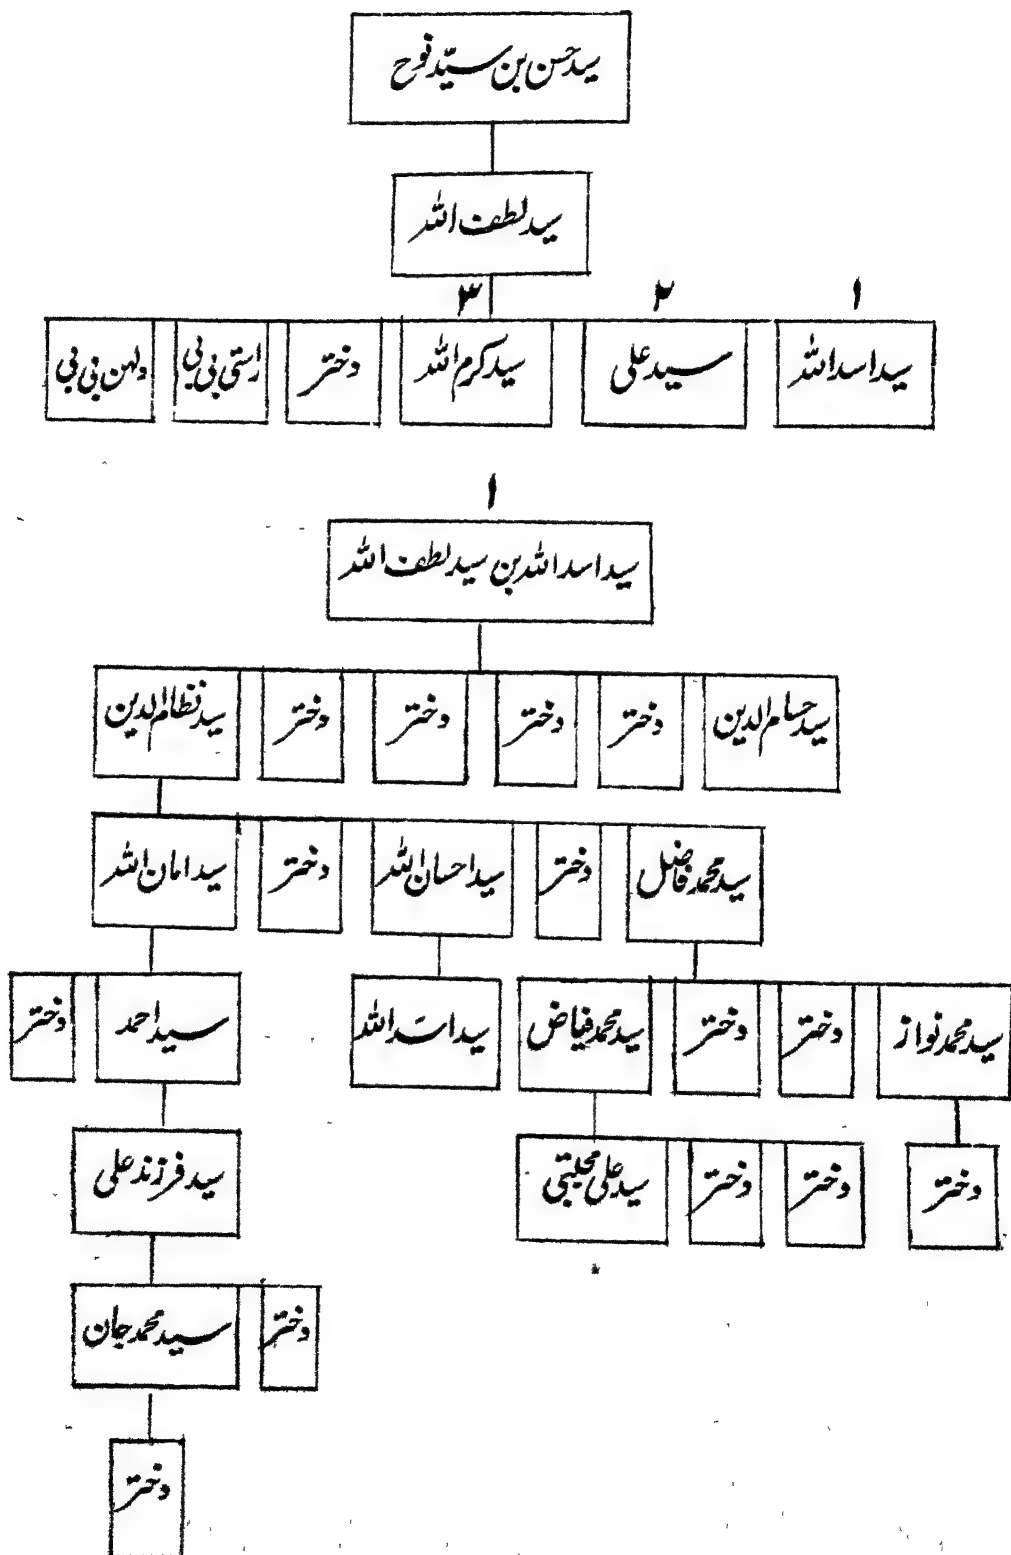 سید حسن بن سیّد نوح
سید لطف اللہ
۱ ۲ ۳
سید اسد اللہ سید علی سید کرم اللہ دختر راستی بی بی دلہن بی بی
۱
سید اسد اللہ بن سید لطف اللہ
سید حسام الدین دختر دختر دختر دختر سید نظام الدین
سید محمد فاضل دختر سید احسان اللہ دختر سید امان اللہ
سید محمد نواز دختر دختر سید محمد فیاض سید اسد اللہ سید احمد دختر
دختر دختر دختر سید علی مجتبیٰ سید فرزند علی
دختر سید محمد جان
دختر